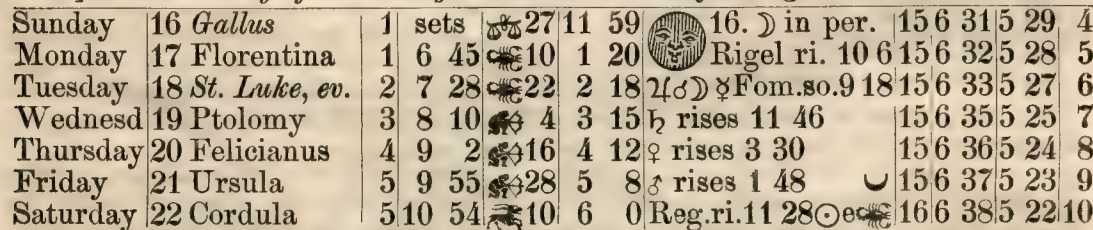 Sunday 16 Gallus 1 sets ♎27 11 59 16. ☽ in per. 15 6 31 5 29 4
Monday 17 Florentina 1 6 45 ♏10 1 20 Rigel ri. 10 6 15 6 32 5 28 5
Tuesday 18 St. Luke, ev. 2 7 28 ♏22 2 18 ♃☌☽ ☿Fom.so.9 18 15 6 33 5 27 6
Wednesd 19 Ptolomy 3 8 10 ♐ 4 3 15 ♄ rises 11 46 15 6 35 5 25 7
Thursday 20 Felicianus 4 9 2 ♐16 4 12 ♀ rises 3 30 15 6 36 5 24 8
Friday 21 Ursula 5 9 55 ♐28 5 8 ♂ rises 1 48 15 6 37 5 23 9
Saturday 22 Cordula 5 10 54 ♑10 6 0 Reg.ri.11 28☉e♏ 16 6 38 5 22 10